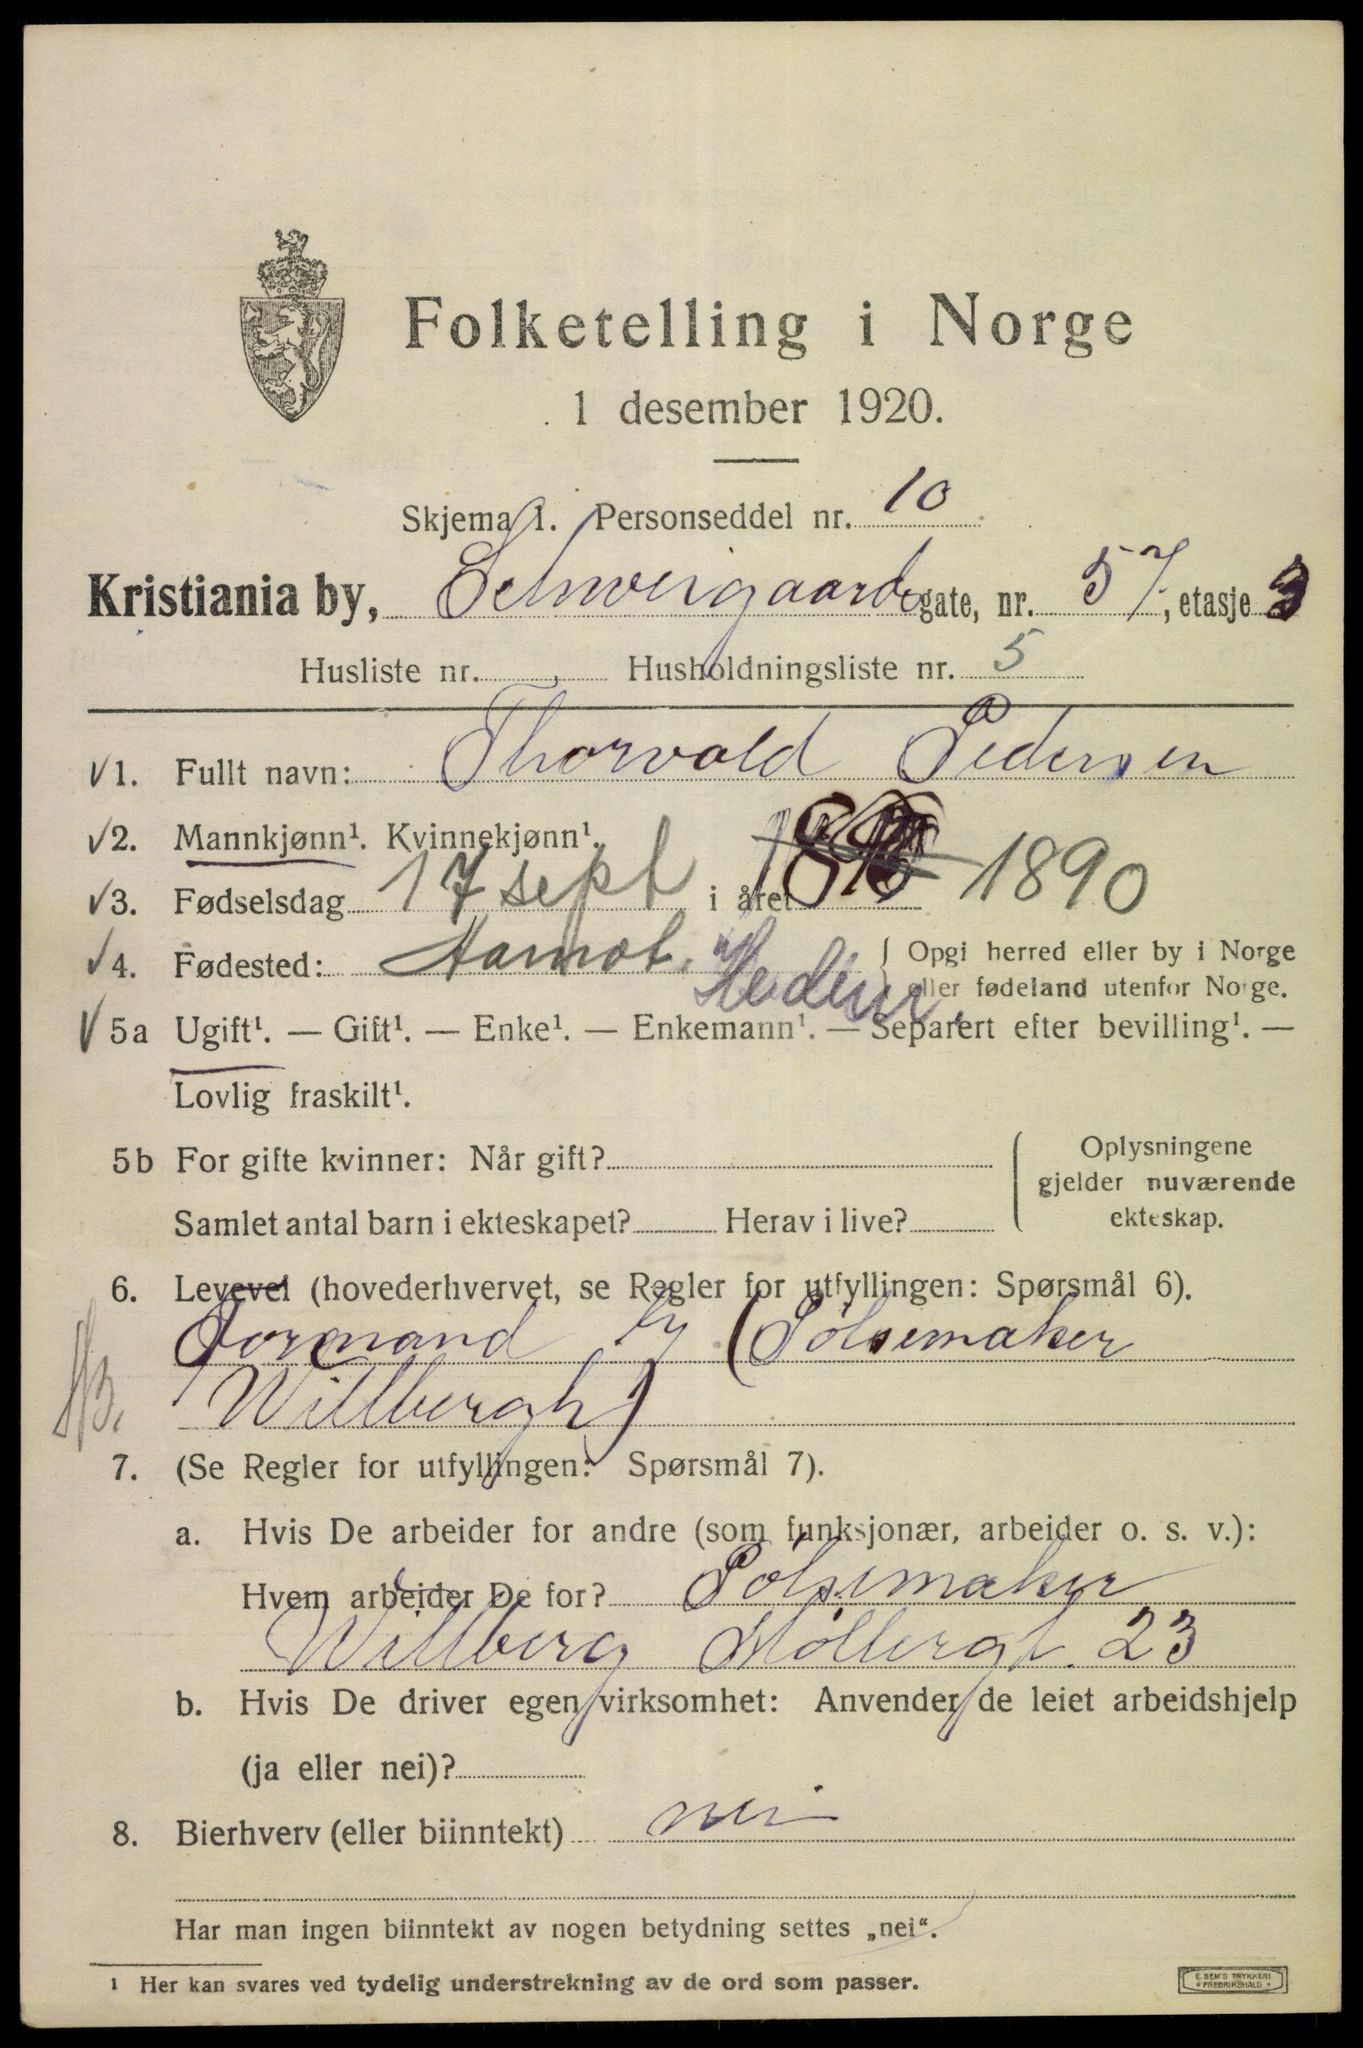 Folketelling i Norge
1 desember 1920.
Skjema 1. Personseddel nr. 10
Kristiania by, Schweigaardsgate, nr. 57, etasje 3
Husliste nr. Husholdningsliste nr. 5
√1. Fullt navn: Thorvald Pedersen
√2. Mannkjønn¹. Kvinnekjønn¹.
√3. Fødselsdag 17 sept i året 1890
√4. Fødested: Aamot. Hedm. { Opgi herred eller by i Norge
eller fødeland utenfor Norge.
√5a Ugift¹. — Gift¹. — Enke¹. — Enkemann¹. — Separert efter bevilling¹. —
Lovlig fraskilt¹.
5b For gifte kvinner: Når gift? { Oplysningene
gjelder nuværende
Samlet antal barn i ekteskapet? Herav i live? ekteskap.
6. Levevei (hovederhvervet, se Regler for utfyllingen: Spørsmål 6).
Formand (Pølsemaker
Willbergh)
7. (Se Regler for utfyllingen: Spørsmål 7).
a. Hvis De arbeider for andre (som funksjonær, arbeider o. s. v.):
Hvem arbeider De for? Pølsemaker
Willberg Møllergt. 23
b. Hvis De driver egen virksomhet: Anvender de leiet arbeidshjelp
(ja eller nei)?
8. Bierhverv (eller biinntekt) nei
Har man ingen biinntekt av nogen betydning settes „nei“.
¹ Her kan svares ved tydelig understrekning av de ord som passer.
E. SEM'S TRYKKERI
FREDRIKSHALD